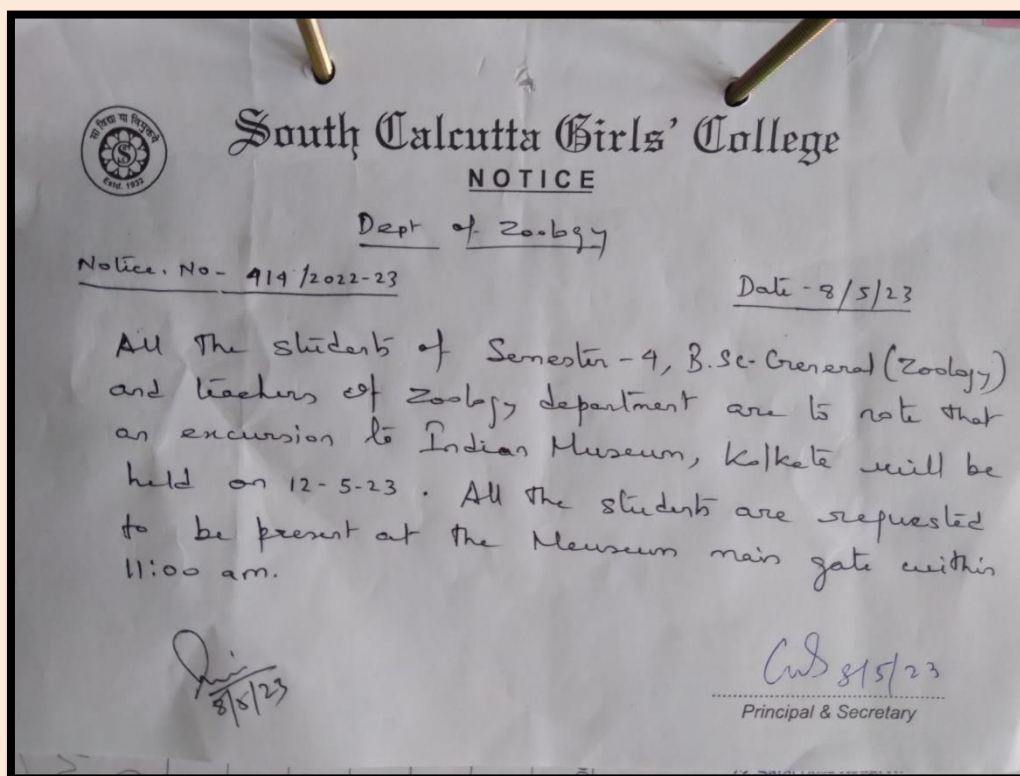 सा विद्या या विमुक्तये
S
Estd. 1932
South Calcutta Girls' College
NOTICE
Dept of Zoology
Notice. No- 414/2022-23
Date - 8/5/23
All the students of Semester-4, B.Sc-General (Zoology)
and teachers of Zoology department are to note that
an excursion to Indian Museum, Kolkata will be
held on 12-5-23. All the students are requested
to be present at the Meuseum main gate within
11:00 am.
8/5/23
8/5/23
Principal & Secretary